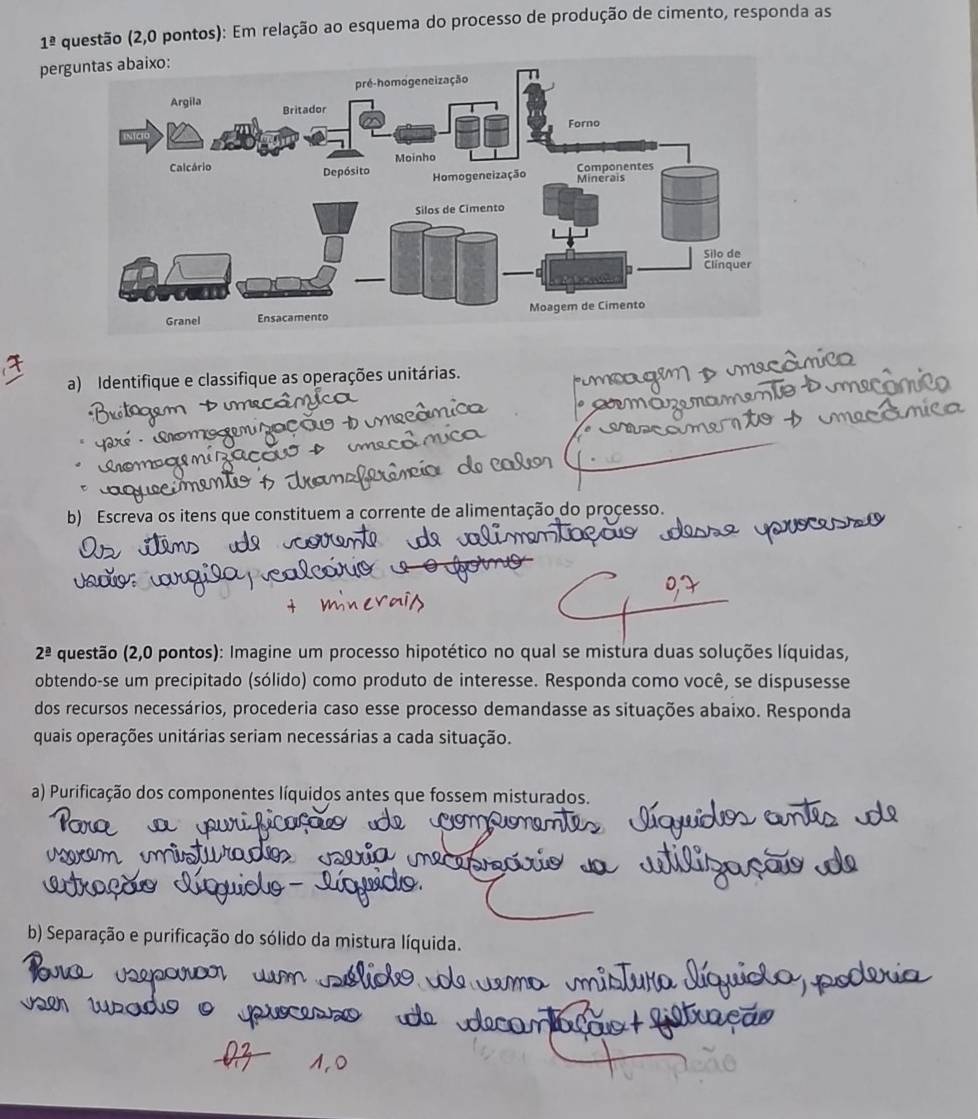 1ª questão (2,0 pontos): Em relação ao esquema do processo de produção de cimento, responda as
perguntas abaixo:
pré-homogeneização
Argila
Britador
INÍCIO
Forno
Calcário
Depósito
Moinho
Homogeneização
Componentes
Minerais
Silos de Cimento
Silo de
Clínquer
Granel
Ensacamento
Moagem de Cimento
,7
a) Identifique e classifique as operações unitárias.
• Britagem → mecânica
• pré-homogenização → mecânica
• homogenização → mecânica
• aquecimento → transferência de calor
• moagem → mecânica
• armazenamento → mecânica
• ensacamento → mecânica
b) Escreva os itens que constituem a corrente de alimentação do processo.
Os itens de corrente de alimentação desse processo
são: argila, calcário e o forno
+ minerais
0,7
2ª questão (2,0 pontos): Imagine um processo hipotético no qual se mistura duas soluções líquidas,
obtendo-se um precipitado (sólido) como produto de interesse. Responda como você, se dispusesse
dos recursos necessários, procederia caso esse processo demandasse as situações abaixo. Responda
quais operações unitárias seriam necessárias a cada situação.
a) Purificação dos componentes líquidos antes que fossem misturados.
Para a purificação de componentes líquidos antes de
serem misturados seria necessário a utilização de
extração líquido-líquido.
b) Separação e purificação do sólido da mistura líquida.
Para separar um sólido de uma mistura líquida, poderia
ser usado o processo de decantação + filtração
0,7 1,0